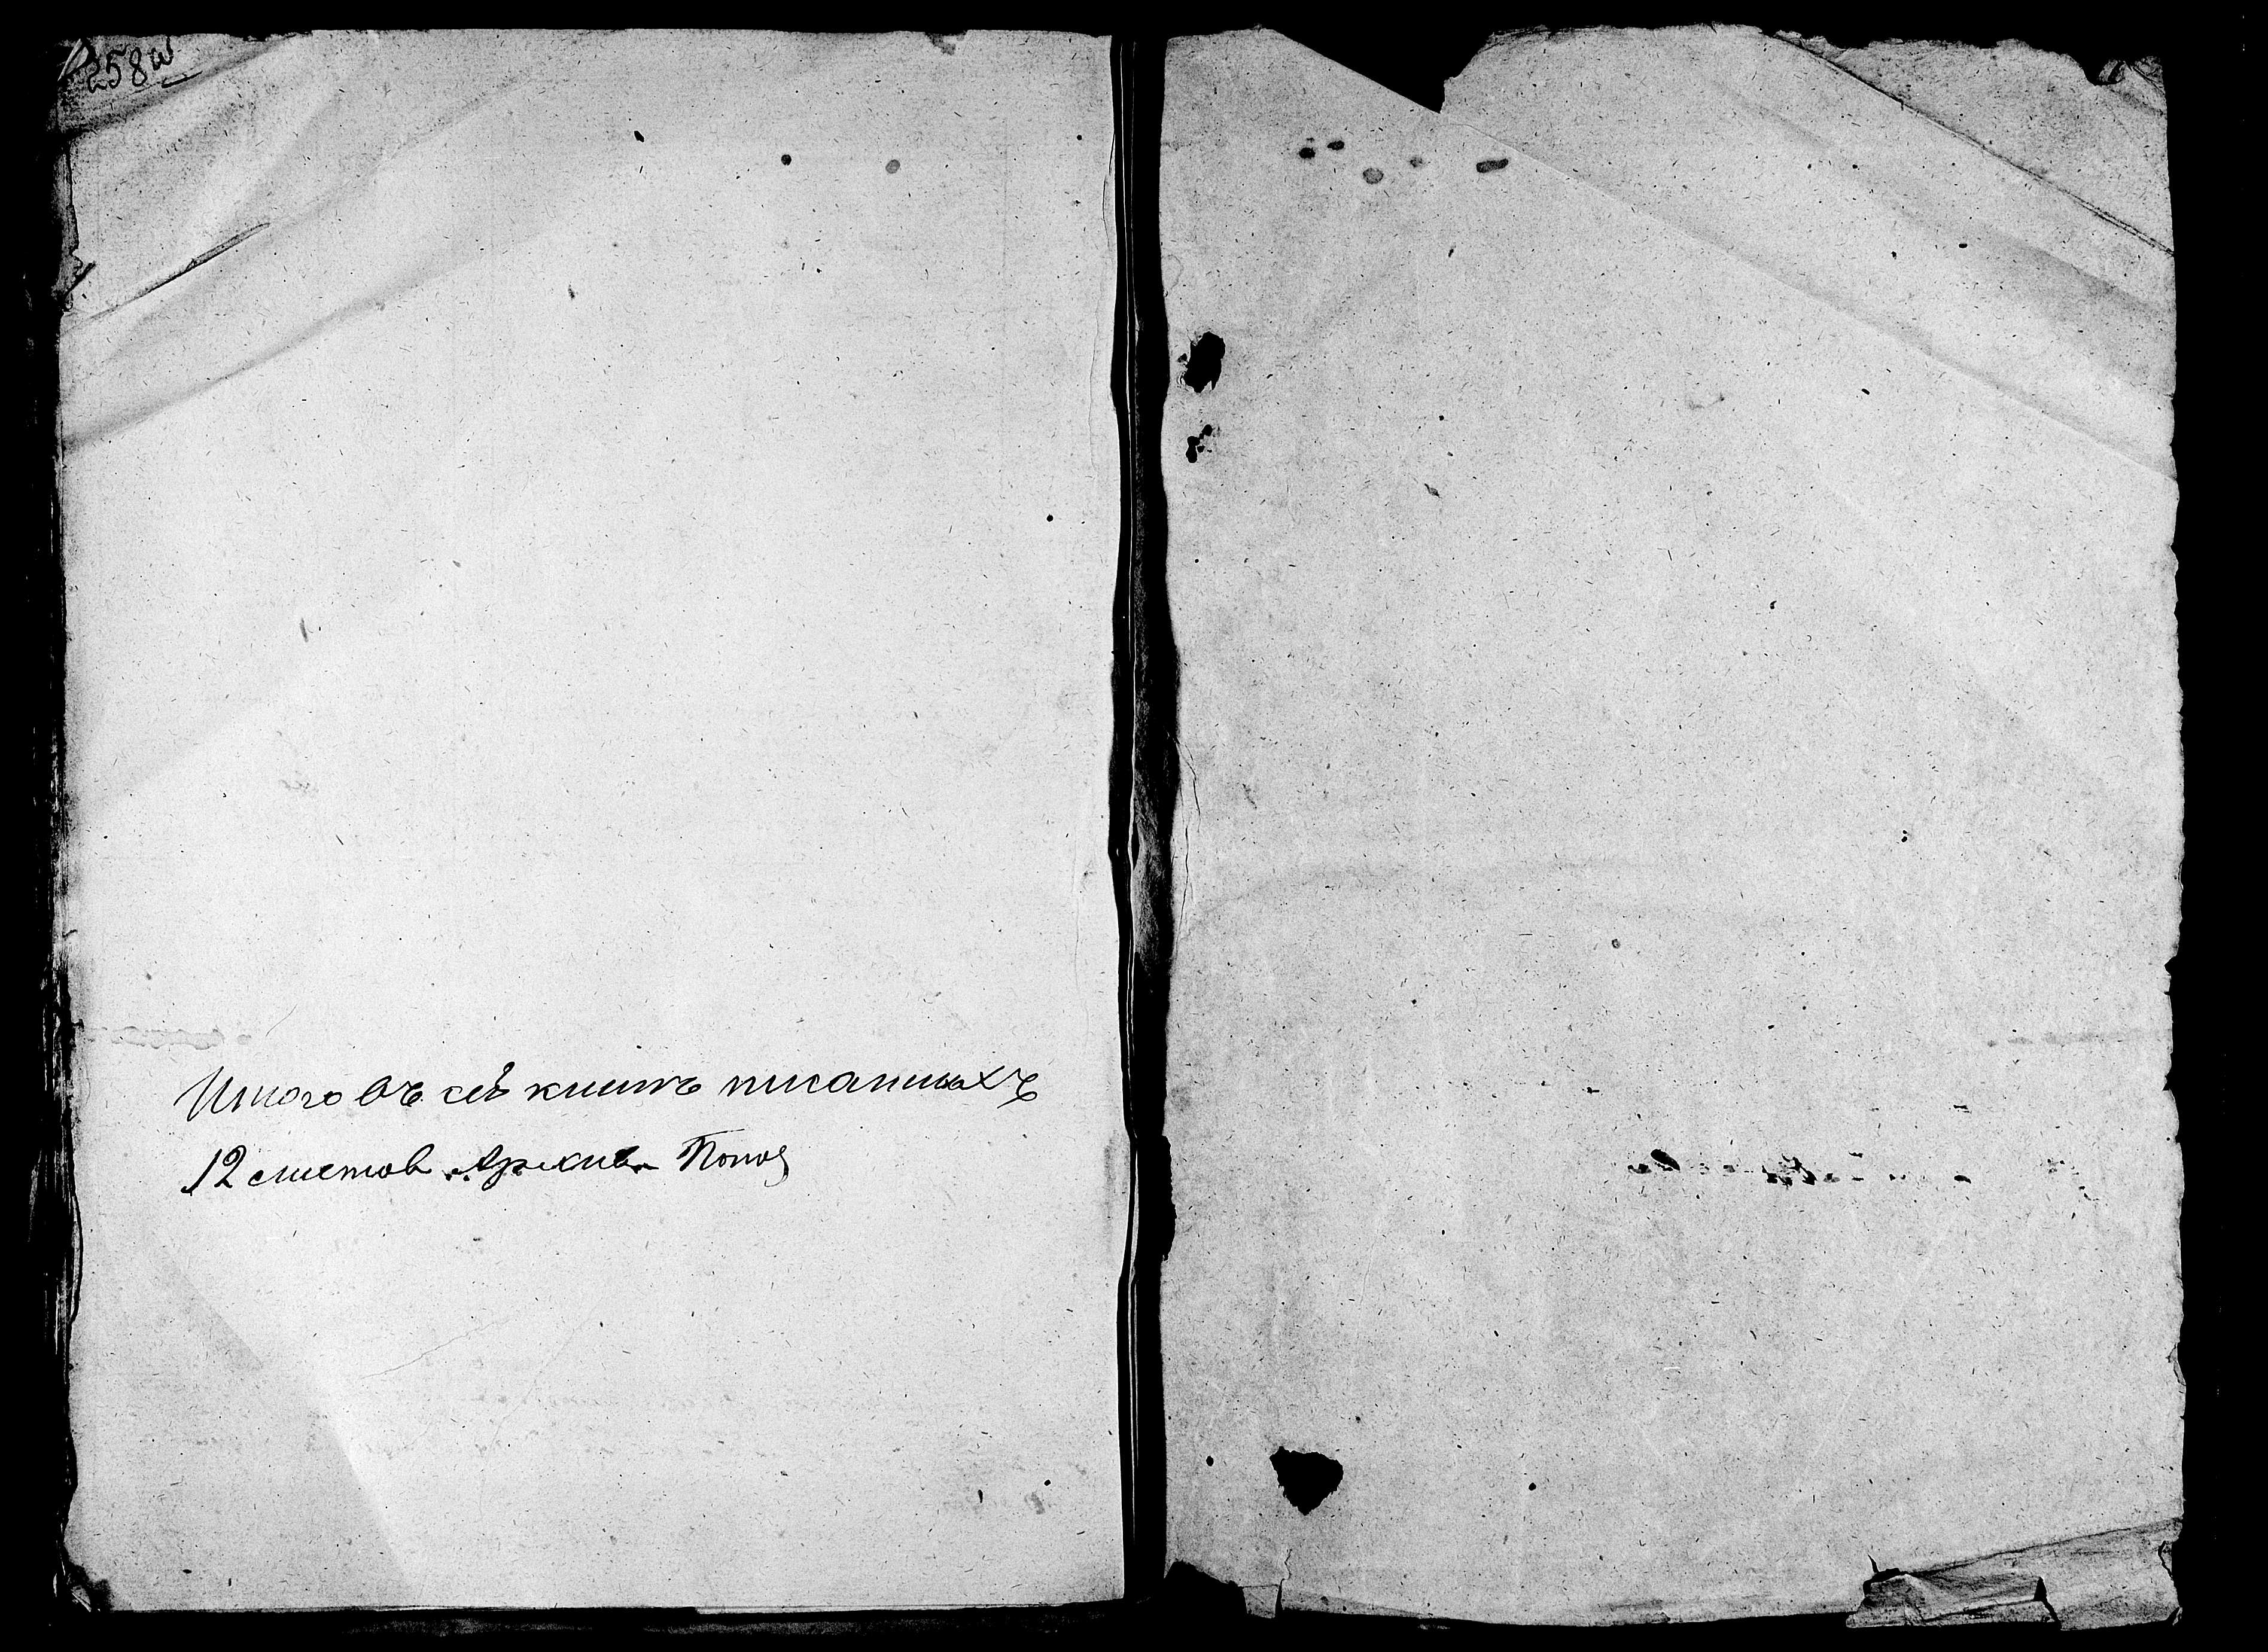 258
Итого въ сей книгъ писанныхъ
12 листов Архива Попов